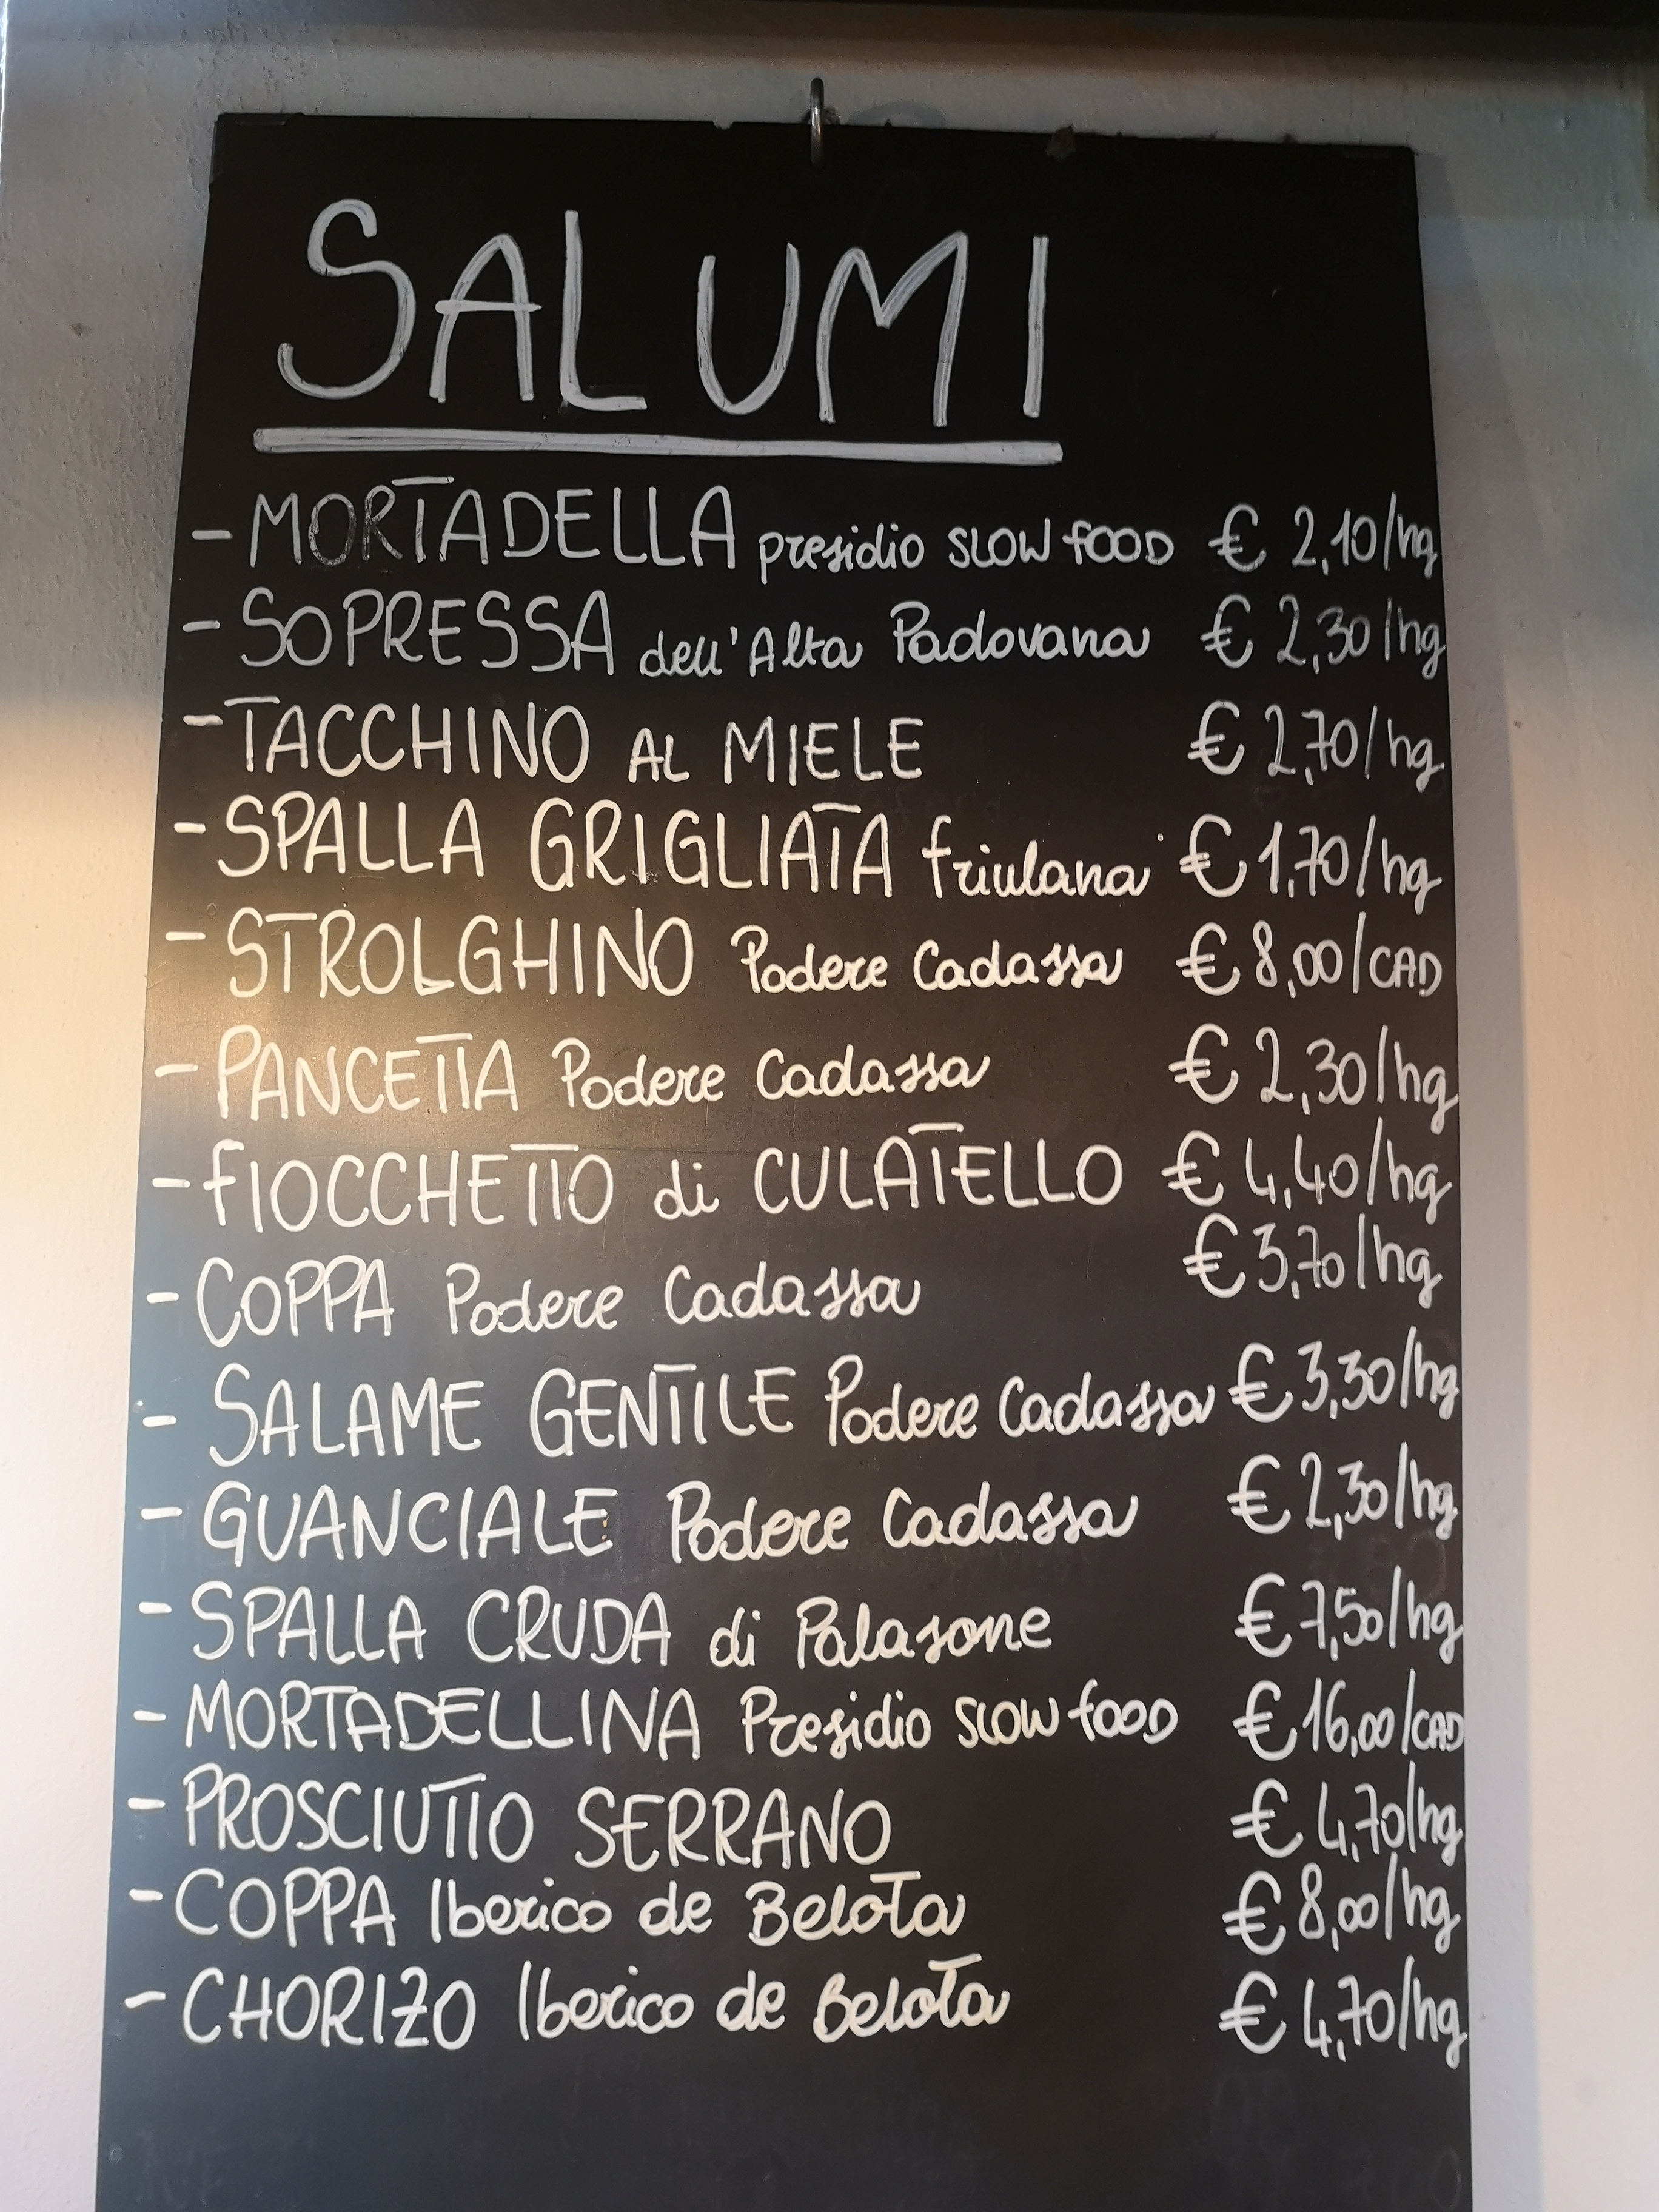 SALUMI
- MORTADELLA presidio SLOW FOOD € 2,10/hg
- SOPRESSA dell'Alta Padovana € 2,30/hg
- TACCHINO AL MIELE € 2,70/hg
- SPALLA GRIGLIATA friulana € 1,70/hg
- STROLGHINO Podere Cadassa € 8,00/CAD
- PANCETTA Podere Cadassa € 2,30/hg
- FIOCCHETTO di CULATELLO € 4,40/hg
- COPPA Podere Cadassa € 3,70/hg
- SALAME GENTILE Podere Cadassa € 3,30/hg
- GUANCIALE Podere Cadassa € 2,30/hg
- SPALLA CRUDA di Palasone € 7,50/hg
- MORTADELLINA Presidio SLOW FOOD € 16,00/CAD
- PROSCIUTTO SERRANO € 4,70/hg
- COPPA Iberico de Belota € 8,00/hg
- CHORIZO Iberico de Belota € 4,70/hg